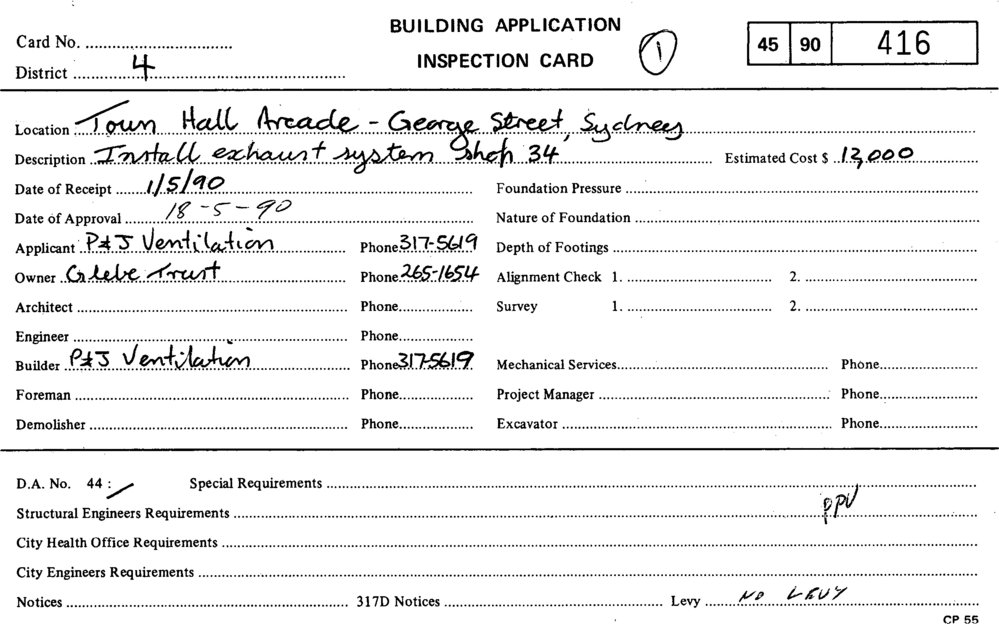 BUILDING APPLICATION
Card No.
INSPECTION CARD 1 45 90 416
District 4
Location Town Hall Arcade - George Street, Sydney
Description Install exhaust system Shop 34 Estimated Cost $ 12,000
Date of Receipt 1/5/90 Foundation Pressure
Date of Approval 18-5-90 Nature of Foundation
Applicant P&J Ventilation Phone 317-5619 Depth of Footings
Owner Glebe Trust Phone 265-1654 Alignment Check 1. 2.
Architect Phone Survey 1. 2.
Engineer Phone
Builder P&J Ventilation Phone 317-5619 Mechanical Services Phone
Foreman Phone Project Manager Phone
Demolisher Phone Excavator Phone
D.A. No. 44 : / Special Requirements
Structural Engineers Requirements PPV
City Health Office Requirements
City Engineers Requirements
Notices 317D Notices Levy NO LEVY
CP 55